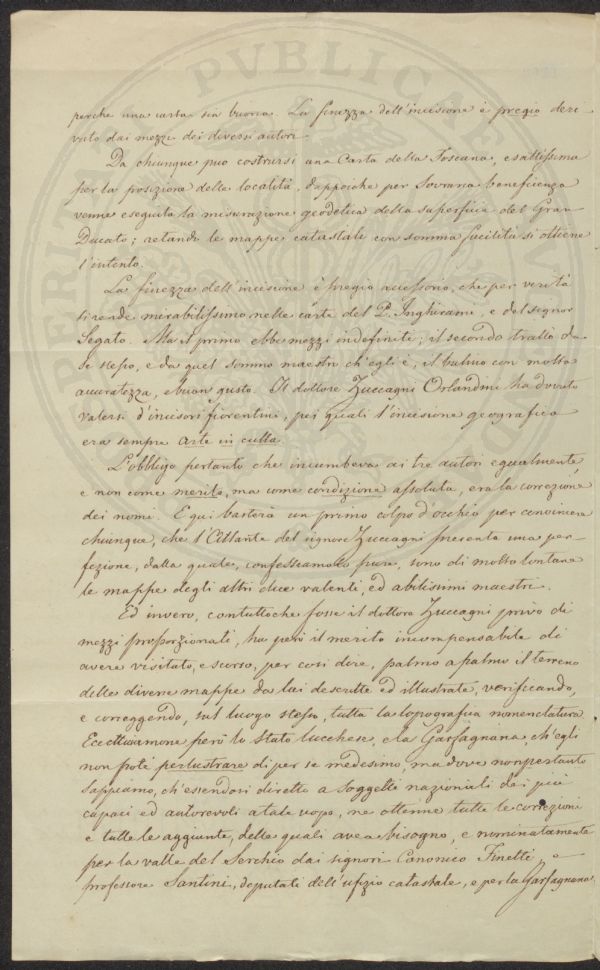 perchè una carta sia buona. La finezza dell'incisione è pregio deri-
vato dai mezzi dei diversi autori.
Da chiunque può costruirsi una Carta della Toscana, esattissima
per la posizione delle località, dappoichè per Sovrana beneficenza
venne eseguita la misurazione geodetica della superficie del Gran
Ducato; retando le mappe catastali con somma facilità si ottiene
l'intento.
La finezza dell'incisione è pregio accessorio, che per verità
si rende mirabilissimo nelle carte del P. Inghirami, e del signor
Segato. Ma il primo ebbe mezzi indefiniti; il secondo trattò da
se stesso, e da quel sommo maestro ch'egli è, il bulino con molta
accuratezza, e buon gusto. Il dottore Zuccagni Orlandini ha dovuto
valersi d'incisori fiorentini, pei quali l'incisione geografica
era sempre arte in culla.
L'obbligo pertanto che incumbeva ai tre autori egualmente,
e non come merito, ma come condizione assoluta, era la correzione
dei nomi. E qui basterà un primo colpo d'occhio per convincere
chiunque, che l'Atlante del signore Zuccagni presenta una per-
fezione, dalla quale, confessiamolo pure, sono di molto lontane
le mappe degli altri due valenti, ed abilissimi maestri.
Ed invero, contuttochè fosse il dottore Zuccagni privo di
mezzi proporzionali, ha però il merito incompensabile di
avere visitato, e scorso, per così dire, palmo a palmo il terreno
delle diverse mappe da lui descritte ed illustrate, verificando,
e correggendo, sul luogo stesso, tutta la topografica nomenclatura.
Eccettuamone però lo Stato lucchese, e la Garfagnana, ch'egli
non potè perlustrare di per se medesimo, ma dove nonpertanto
sappiamo, ch'essendosi diretto a soggetti nazionali dei più
capaci ed autorevoli a tale uopo, ne ottenne tutte le correzioni
e tutte le aggiunte, delle quali avea bisogno, e nominatamente
per la valle del Serchio dai signori Canonico Finetti, e
professore Santini, deputati dell'ufizio catastale, e per la Garfagnana
PVBLICAE